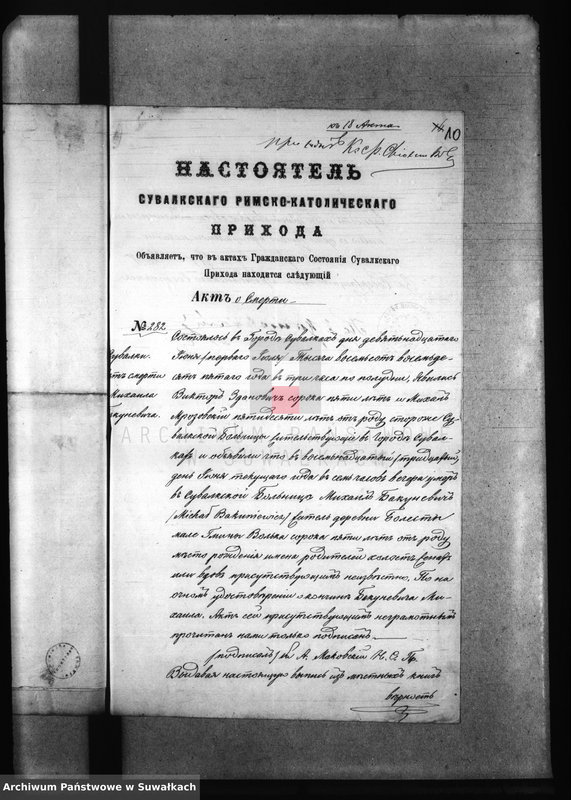 къ 18 Акта
10
при
НАСТОЯТЕЛЬ
СУВАЛКСКАГО РИМСКО-КАТОЛИЧЕСКАГО
ПРИХОДА
Объявляетъ, что в актахъ Гражданскаго Состоянія Сувалкскаго
Прихода находится слѣдующій
Актъ о Смерти
№ 282.
Сувалки.
смерти
Михаила
Бакуневича.
Состоялось въ Городѣ Сувалкахъ дня девятьнадцатаго
Іюня /перваго Іюля/ Тысяча восемьсотъ восемьде-
сятъ пятаго года въ три часа по полудни. Явились
Викторъ Здановичъ сорока пяти лѣтъ и Михаилъ
Мрозовскій пятидесяти лѣтъ отъ роду сторожи Су-
валкской Больницы жительствующіе въ Городѣ Сувал-
кахъ и объявили что въ восемьнадцатый /тридцатый/
день Іюня текущаго года въ семь часовъ вечера умеръ
въ Сувалкской Больницѣ Михаилъ Бакуневичъ
/Michał Bakuniewicz/ житель деревни Болесты
мале Гмины Волька сорока пяти лѣтъ отъ роду
мѣсто рожденія имена родителей холостъ женатъ
или вдовъ присутствующимъ неизвѣстно. По на
очномъ удостовѣреніи о кончинѣ Бакуневича Ми-
хаила. Актъ сей присутствующимъ неграмотнымъ
прочитанъ нами только подписанъ
/подписалъ/ А. Маковскій Н. С. П.
Выдавая настоящую выпись изъ мѣстныхъ книгъ
вѣрность
ARCHIWUM PAŃSTWOWE
W SUWAŁKACH
Archiwum Państwowe w Suwałkach